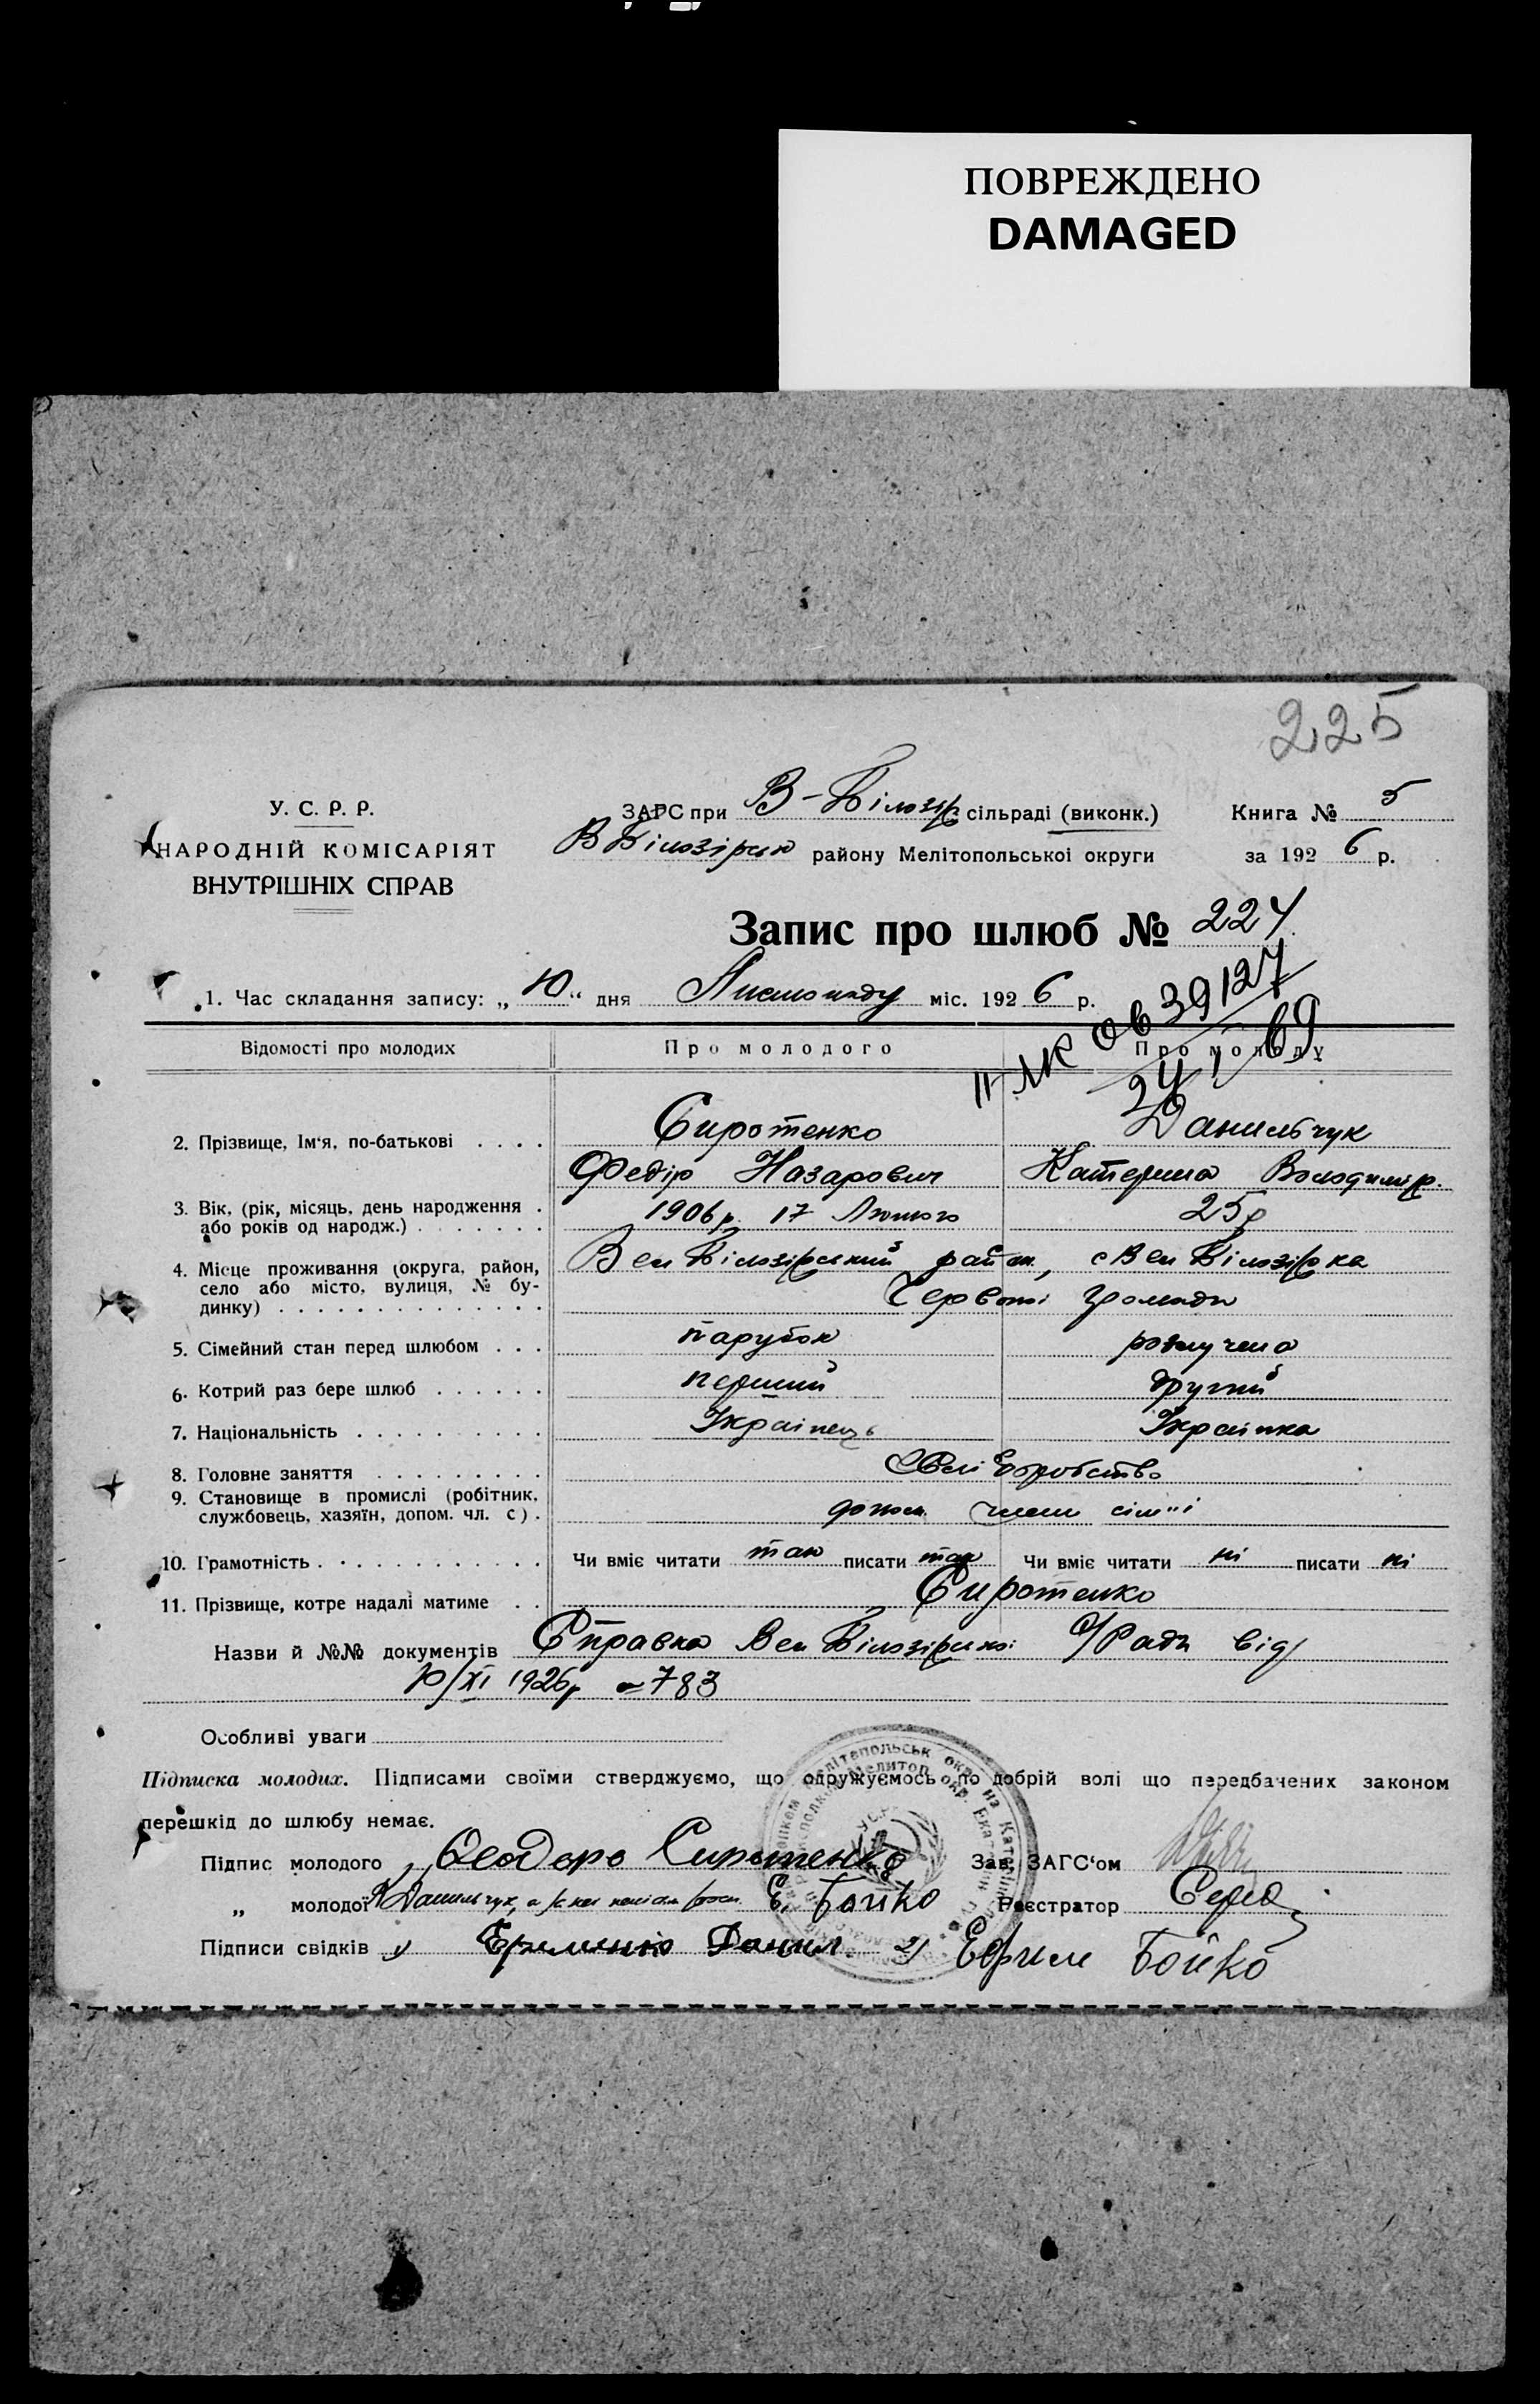 ПОВРЕЖДЕНО
DAMAGED
225
У. С. Р. Р.
НАРОДНІЙ КОМІСАРІЯТ
ВНУТРІШНІХ СПРАВ
ЗАГС при В-Білозір. сільраді (виконк.) Книга № 5
В Білозірськ району Мелітопольськоі округи за 192 6 р.
Запис про шлюб № 224
1. Час складання запису: „ 10 “ дня Листопаду міс. 192 6 р.
39127
24/1 69
Відомості про молодих Про молодого Про молоду
2. Прізвище, Ім‘я, по-батькові . . . . Сиротенко Данильчук
Федір Назарович Катерина Володимір.
3. Вік, (рік, місяць, день народження .
або років од народж.) . . . . . . . 1906 р. 17 Лютого 25 р
4. Місце проживання (округа, район,
село або місто, вулиця, № бу-
динку) . . . . . . . . . . . . . .
Вел Білозірський район, с Вел Білозірка
Червоні Громади
5. Сімейний стан перед шлюбом . . . парубок розлучена
6. Котрий раз бере шлюб . . . . . . перший другий
7. Національність . . . . . . . . . . Українець Українка
8. Головне заняття . . . . . . . . . Хліборобство
9. Становище в промислі (робітник,
службовець, хазяїн, допом. чл. с) . допом. член сім'ї
10. Грамотність . . . . . . . . . . . . Чи вміє читати так писати так Чи вміє читати ні писати ні
11. Прізвище, котре надалі матиме . . Сиротенко
Назви й №№ документів Справка Вел Білозірської С/Ради від
10/XI 1926р № 783
Особливі уваги
Підписка молодих. Підписами своїми стверджуємо, що одружуємось по добрій волі що передбачених законом
перешкід до шлюбу немає.
Підпис молодого Феодоро Сиротенко Зав. ЗАГС‘ом
„ молодої Данильчук, а за неї Е. Бойко Реєстратор Серед
Підписи свідків 1/ Єрьменко Данил 2/ Ефрим Бойко